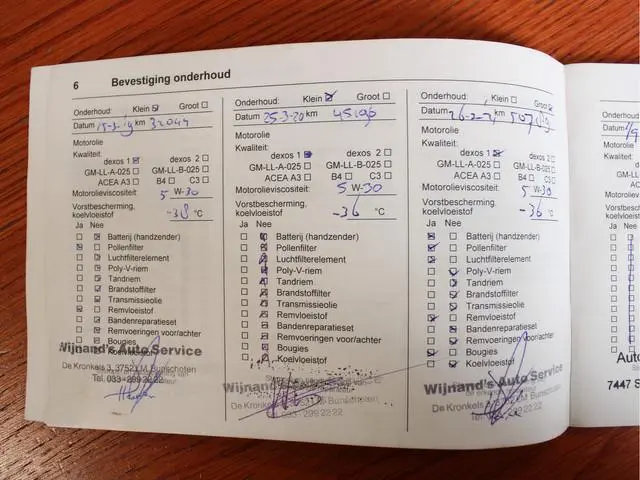 6 Bevestiging onderhoud
Onderhoud: Klein Groot
Datum 15-3-19 km 32044
Motorolie
Kwaliteit:
dexos 1 dexos 2
GM-LL-A-025 GM-LL-B-025
ACEA A3 B4 C3
Motorolieviscositeit: 5 W-30
Vorstbescherming,
koelvloeistof -38 °C
Ja Nee
Batterij (handzender)
Pollenfilter
Luchtfilterelement
Poly-V-riem
Tandriem
Brandstoffilter
Transmissieolie
Remvloeistof
Bandenreparatieset
Remvoeringen voor/achter
Bougies
Koelvloeistof
Wijnand's Auto Service
De Kronkels 3, 3752 LM Bunschoten
Tel. 033 - 299 22 22
Onderhoud: Klein Groot
Datum 25-3-20 km
Motorolie
Kwaliteit:
dexos 1 dexos 2
GM-LL-A-025 GM-LL-B-025
ACEA A3 B4 C3
Motorolieviscositeit: 5 W-30
Vorstbescherming,
koelvloeistof -36 °C
Ja Nee
Batterij (handzender)
Pollenfilter
Luchtfilterelement
Poly-V-riem
Tandriem
Brandstoffilter
Transmissieolie
Remvloeistof
Bandenreparatieset
Remvoeringen voor/achter
Bougies
Koelvloeistof
Wijnand's
De Kronkels Bunschoten
033 - 299 22 22
Onderhoud: Klein Groot
Datum 26-2-21 km
Motorolie
Kwaliteit:
dexos 1 dexos 2
GM-LL-A-025 GM-LL-B-025
ACEA A3 B4 C3
Motorolieviscositeit: 5 W-30
Vorstbescherming,
koelvloeistof -36 °C
Ja Nee
Batterij (handzender)
Pollenfilter
Luchtfilterelement
Poly-V-riem
Tandriem
Brandstoffilter
Transmissieolie
Remvloeistof
Bandenreparatieset
Remvoeringen voor/achter
Bougies
Koelvloeistof
Wijnand's Auto Service
De Kronkels 3, 3752 LM Bunschoten
Tel. 033 - 299 22 22
Onderhoud
Datum
Motorolie
Kwaliteit:
Ja
Auto
7447 S